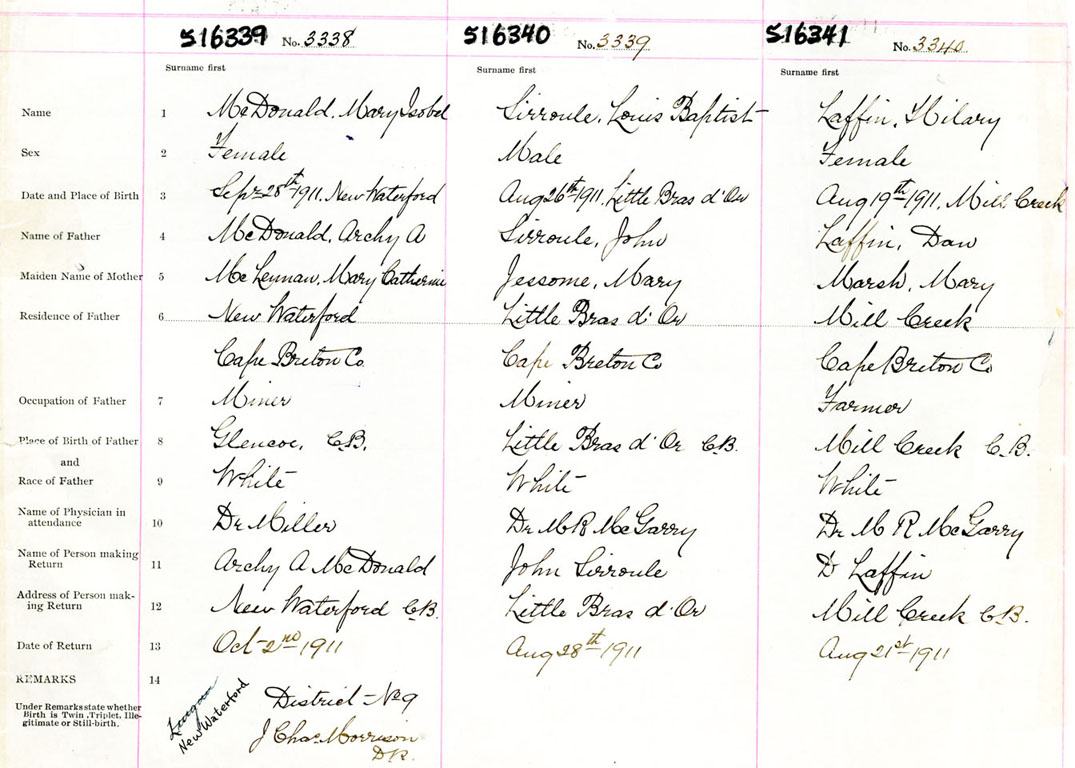 516339 No. 3338 516340 No. 3339 516341 No. 3340
Surname first Surname first Surname first
Name 1 McDonald, Mary Isobel Sirroule, Louis Baptist Laffin, Hilary
Sex 2 Female Male Female
Date and Place of Birth 3 Sept 28th 1911, New Waterford Aug 26th 1911, Little Bras d'Or Aug 19th 1911, Mill Creek
Name of Father 4 McDonald, Archy A Sirroule, John Laffin, Dan
Maiden Name of Mother 5 McLennan, Mary Catherine Jessome, Mary Marsh, Mary
Residence of Father 6 New Waterford Little Bras d'Or Mill Creek
Cape Breton Co. Cape Breton Co Cape Breton Co
Occupation of Father 7 Miner Miner Farmer
Place of Birth of Father 8 Glencoe, C.B. Little Bras d'Or C.B. Mill Creek C.B.
and
Race of Father 9 White White White
Name of Physician in
attendance 10 Dr Miller Dr M R McGarry Dr M R McGarry
Name of Person making
Return 11 Archy A McDonald John Sirroule D Laffin
Address of Person mak-
ing Return 12 New Waterford C.B. Little Bras d'Or Mill Creek C.B.
Date of Return 13 Oct 2nd 1911 Aug 28th 1911 Aug 21st 1911
REMARKS 14
Under Remarks state whether
Birth is Twin, Triplet, Ille-
gitimate or Still-birth.
New Waterford
District No 9
J Chas Morrison
D.R.